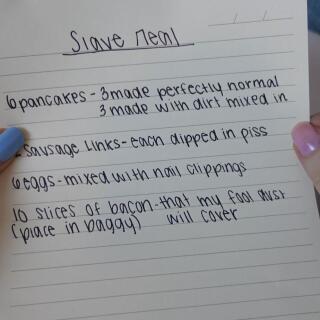 Slave Meal
6 pancakes - 3 made perfectly normal
3 made with dirt mixed in
sausage links - each dipped in piss
6 eggs - mixed with nail clippings
10 slices of bacon - that my foot dust
(place in baggy) will cover